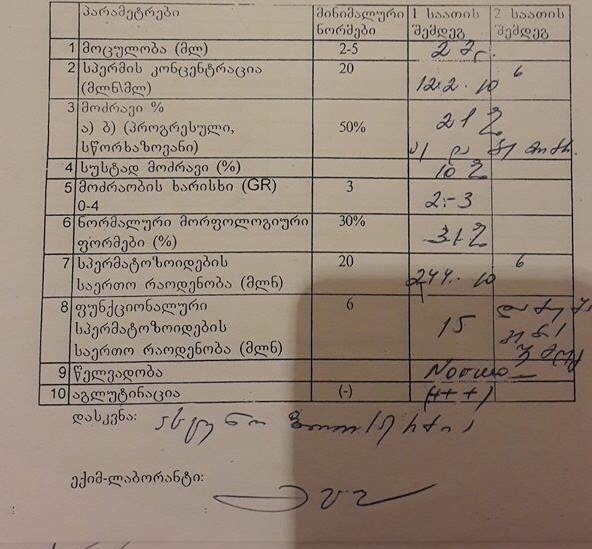 პარამეტრები მინიმალური ნორმები 1 საათის შემდეგ 2 საათის შემდეგ
1 მოცულობა (მლ) 2-5
2 სპერმის კონცენტრაცია (მლნ\მლ) 20 122. 10 6
3 მოძრავი %
ა) ბ) (პროგრესული, სწორხაზოვანი) 50% 21%
4 სუსტად მოძრავი (%) 10%
5 მოძრაობის ხარისხი (GR) 0-4 3 2-3
6 ნორმალური მორფოლოგიური ფორმები (%) 30% 31%
7 სპერმატოზოიდების საერთო რაოდენობა (მლნ) 20 244. 10 6
8 ფუნქციონალური სპერმატოზოიდების საერთო რაოდენობა (მლნ) 6 15
9 წელვადობა
10 აგლუტინაცია (-) (+++)
დასკვნა:
ექიმ-ლაბორანტი: